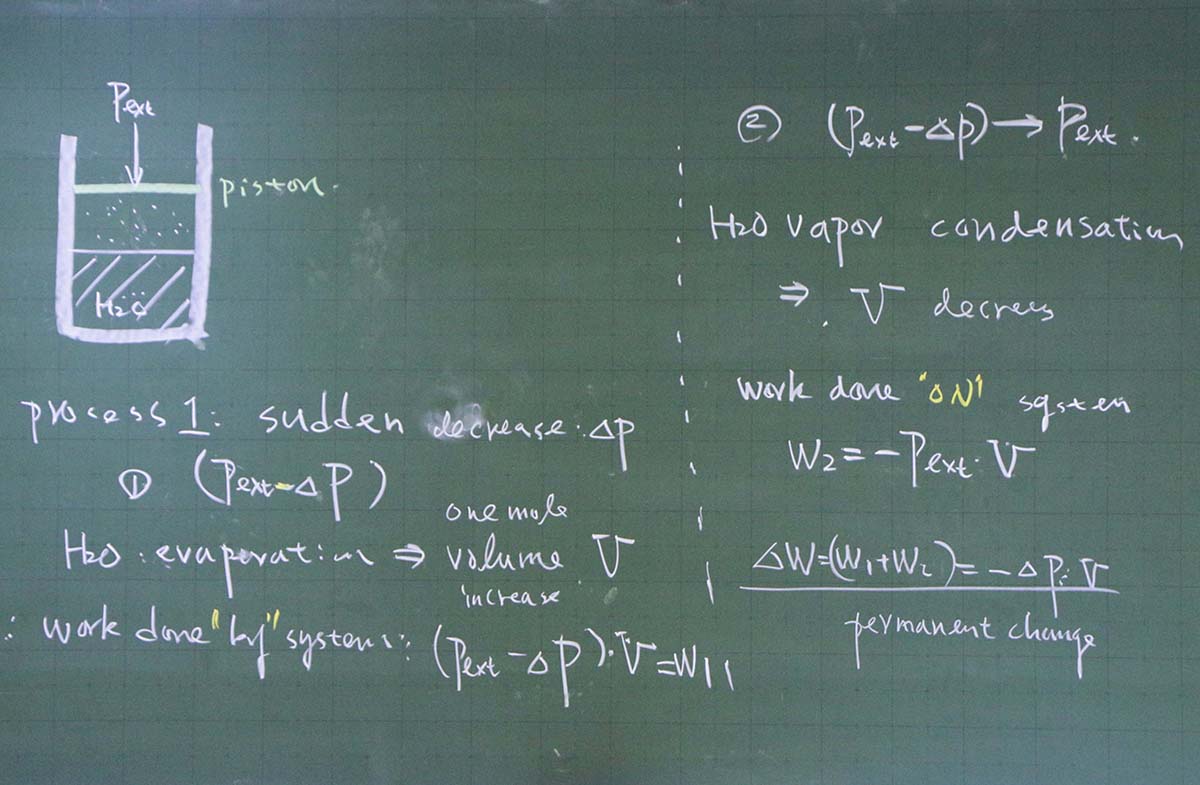 Pext
piston.
H2O
process 1: sudden decrease: Δp
① (Pext-ΔP)
H2O: evaporation ⇒ one mole volume V increase
∴ work done "by" system: (Pext-ΔP)·V=W1
② (Pext-Δp)→Pext.
H2O vapor condensation
⇒ V decrees
work done "ON" system
W2=-Pext·V
ΔW=(W1+W2)=-ΔP·V
permanent change